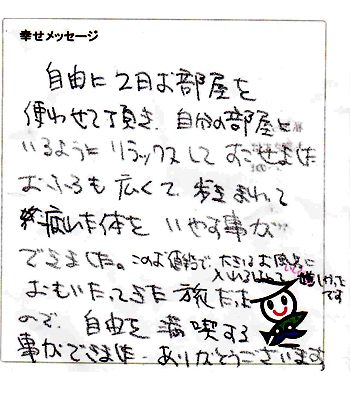 幸せメッセージ
自由に2日お部屋を
使わせて頂き、自分の部屋に
いるようにリラックスしてすごせました
おふろも広くて、歩きまわって
疲れた体をいやす事が
できました。このお値段で、大きなお風呂に
入れるなんて嬉しかったです
おもいたってきた旅だった
ので、自由を満喫する
事ができました。ありがとうございます